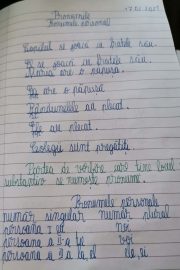 17.01.2022
Pronumele
Pronumele personal
Copilul se joacă cu fratele său.
El se joacă cu fratele său.
Maria are o păpușă.
Ea are o păpușă.
Rândunelele au plecat.
Ele au plecat.
Colegii sunt pregătiți.
Partea de vorbire care ține locul
substantivului se numește pronume.
Pronumele personale
număr singular număr plural
persoana I eu noi
persoana a II-a tu voi
persoana a III-a el, ea ei, ele